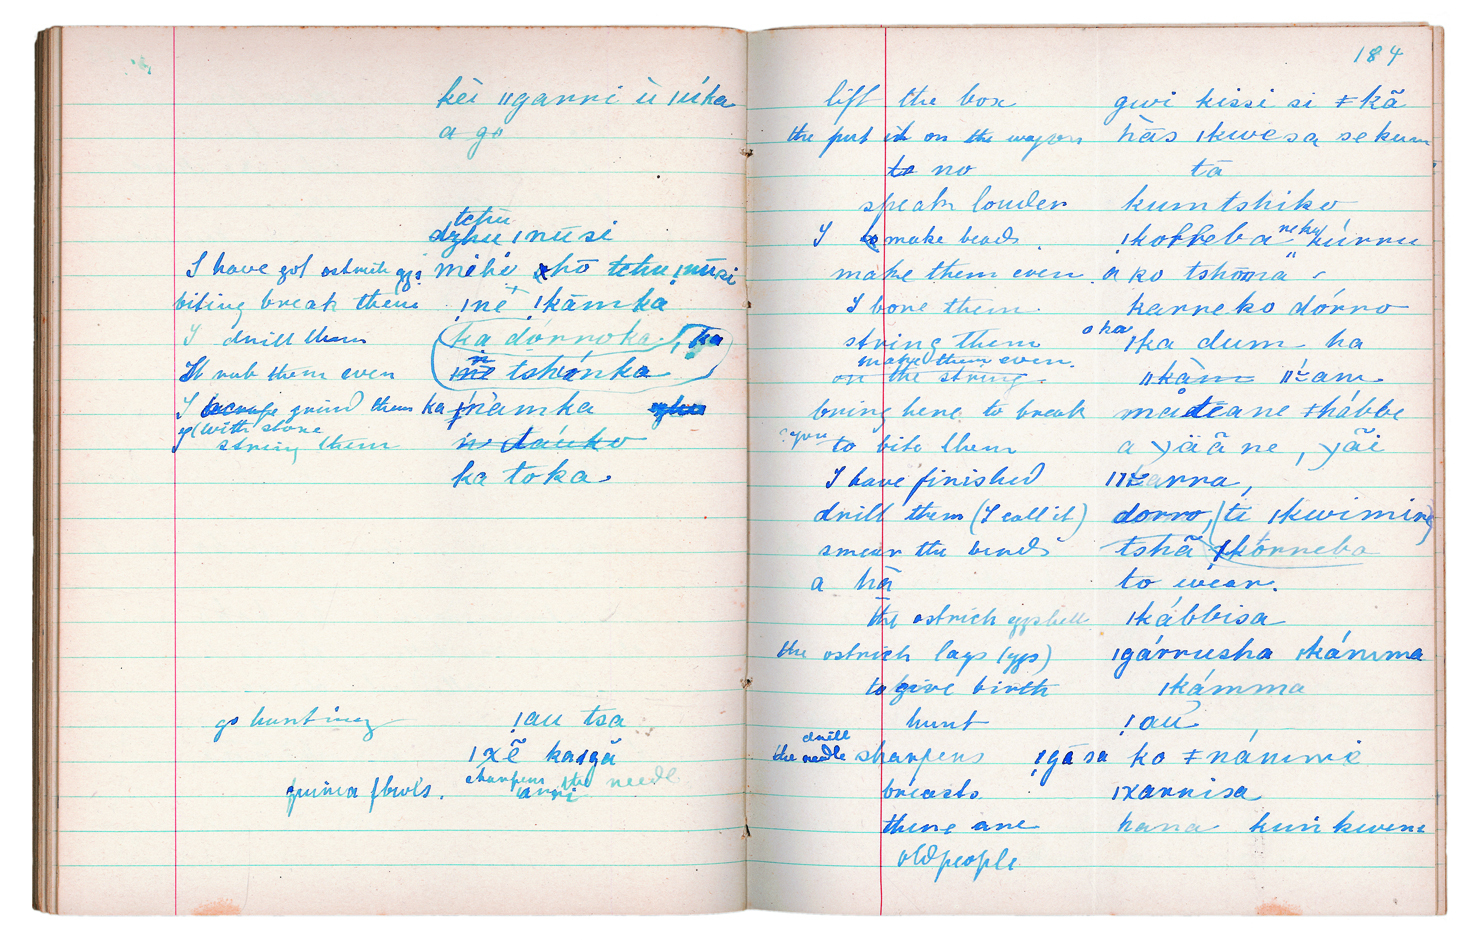 kèi ǁgarri ù ǀúka
a go
tchu
dzhu ǀnūsi
I have got ostrich eggs méhè ko tchu ǀnūsi
biting break them ǀnē ǃkāmka
I drill them ka dórroka, ka
I rub them even nē tshónka
I scrape grind them ka ǀnamka
with stone
string them n dáuko
ka toka.
go hunting ǃau tsa
ǀxẽ kaǀgã
sharpens the needle
guinea fowls. ǀarri
184
lift the box gwi kissi si ǂkã
the put it on the wagon hãs ǀkwesa sekum
to no tã
speak louder kumtshiko
I to make beads. ǃkorreba nehu kúrru
make them even a ko tshõna
I bore them karreko dórro
string them o ka ǀka dum ha
make them even.
on the string. ǁkàm ǁàm
bring here to break måteane ǂhábbe
?you to bite them a yäāne, yãi
I have finished ǁkarra,
drill them (I call it) dorro, (ti ǀkwiming)
smear the beads tshã ǀkórreba
a hã to wear.
the ostrich eggshell ǀkábbisa
the ostrich lays (eggs) ǀgárrusha ǀkámma
to give birth ǀkámma
hunt ǃaũ
drill
the needle sharpens ǀgàsa ko ǂnámmè
breasts ǀxarrisa
there are hana kuri kwene
old people